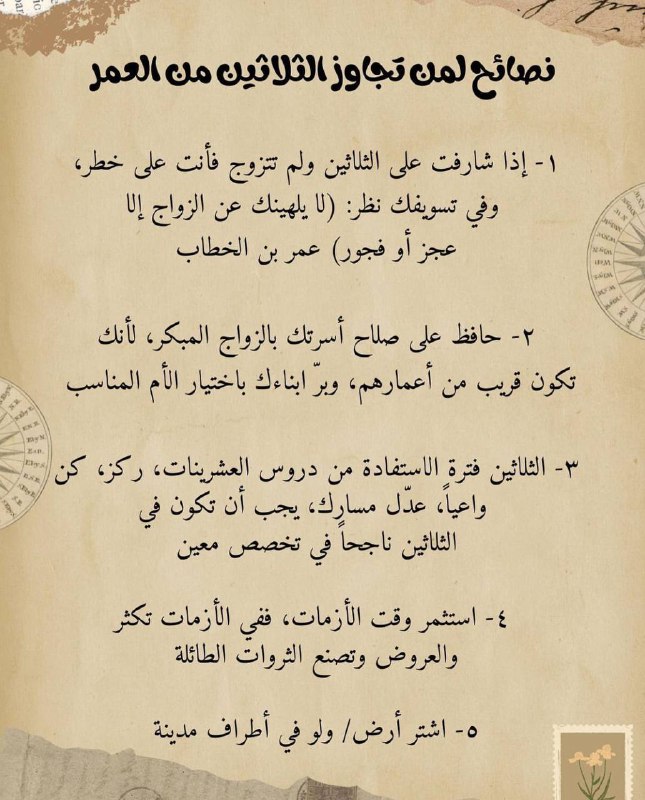 نصائح لمن تجاوز الثلاثين من العمر
١- إذا شارفت على الثلاثين ولم تتزوج فأنت على خطر،
وفي تسويفك نظر: (لا يلهينك عن الزواج إلا
عجز أو فجور) عمر بن الخطاب
٢- حافظ على صلاح أسرتك بالزواج المبكر، لأنك
تكون قريب من أعمارهم، وبرّ ابناءك باختيار الأم المناسب
٣- الثلاثين فترة الاستفادة من دروس العشرينات، ركز، كن
واعياً، عدّل مسارك، يجب أن تكون في
الثلاثين ناجحاً في تخصص معين
٤- استثمر وقت الأزمات، ففي الأزمات تكثر
والعروض وتصنع الثروات الطائلة
٥- اشتر أرض/ ولو في أطراف مدينة